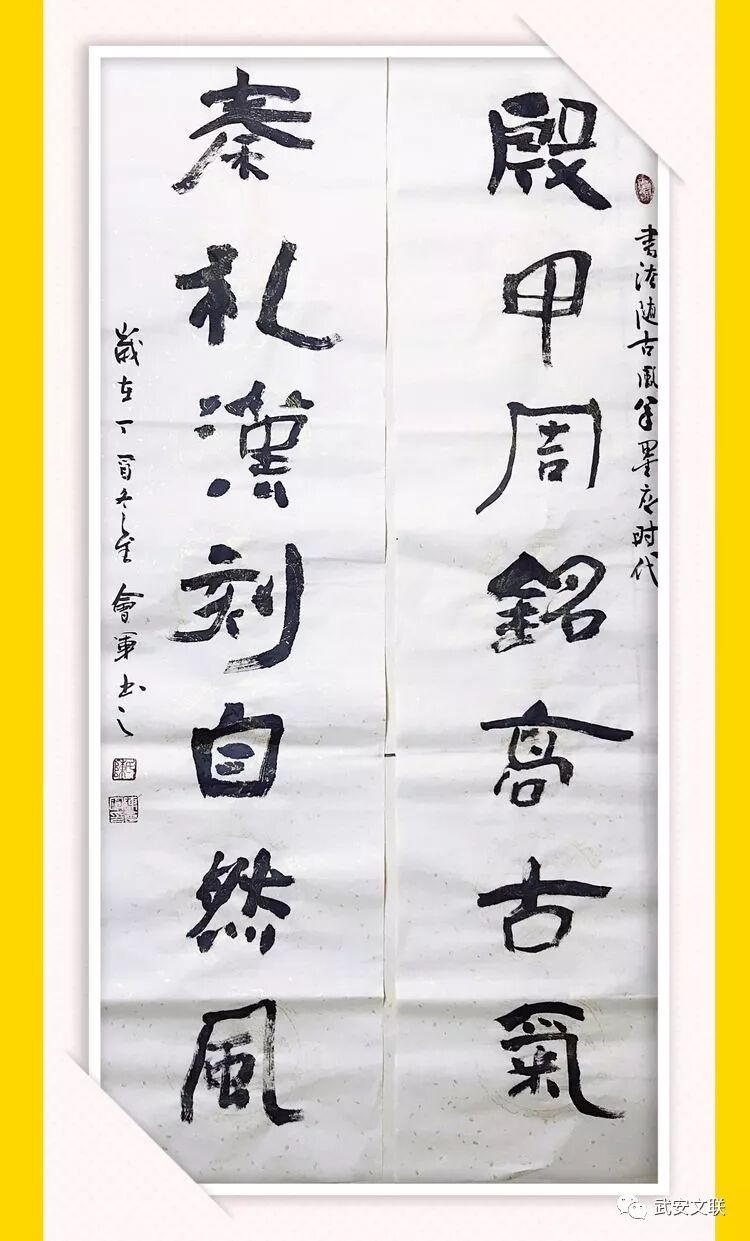 書法随古風翰墨应时代
殷甲周銘高古氣
秦札漢刻自然風
歲在丁酉冬之望會軍书之
武安文联